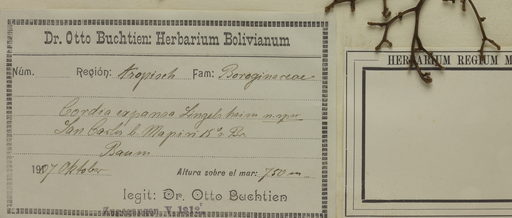 Dr. Otto Buchtien: Herbarium Bolivianum
Núm. Región: tropisch Fam: Boraginaceae
Cordia expansa Lingelsheim n. spec.
San Carlos b. Mapiri 15° S. Br.
Baum
1907 Oktober Altura sobre el mar: 750 m
legit: Dr. Otto Buchtien
HERBARIUM REGIUM M